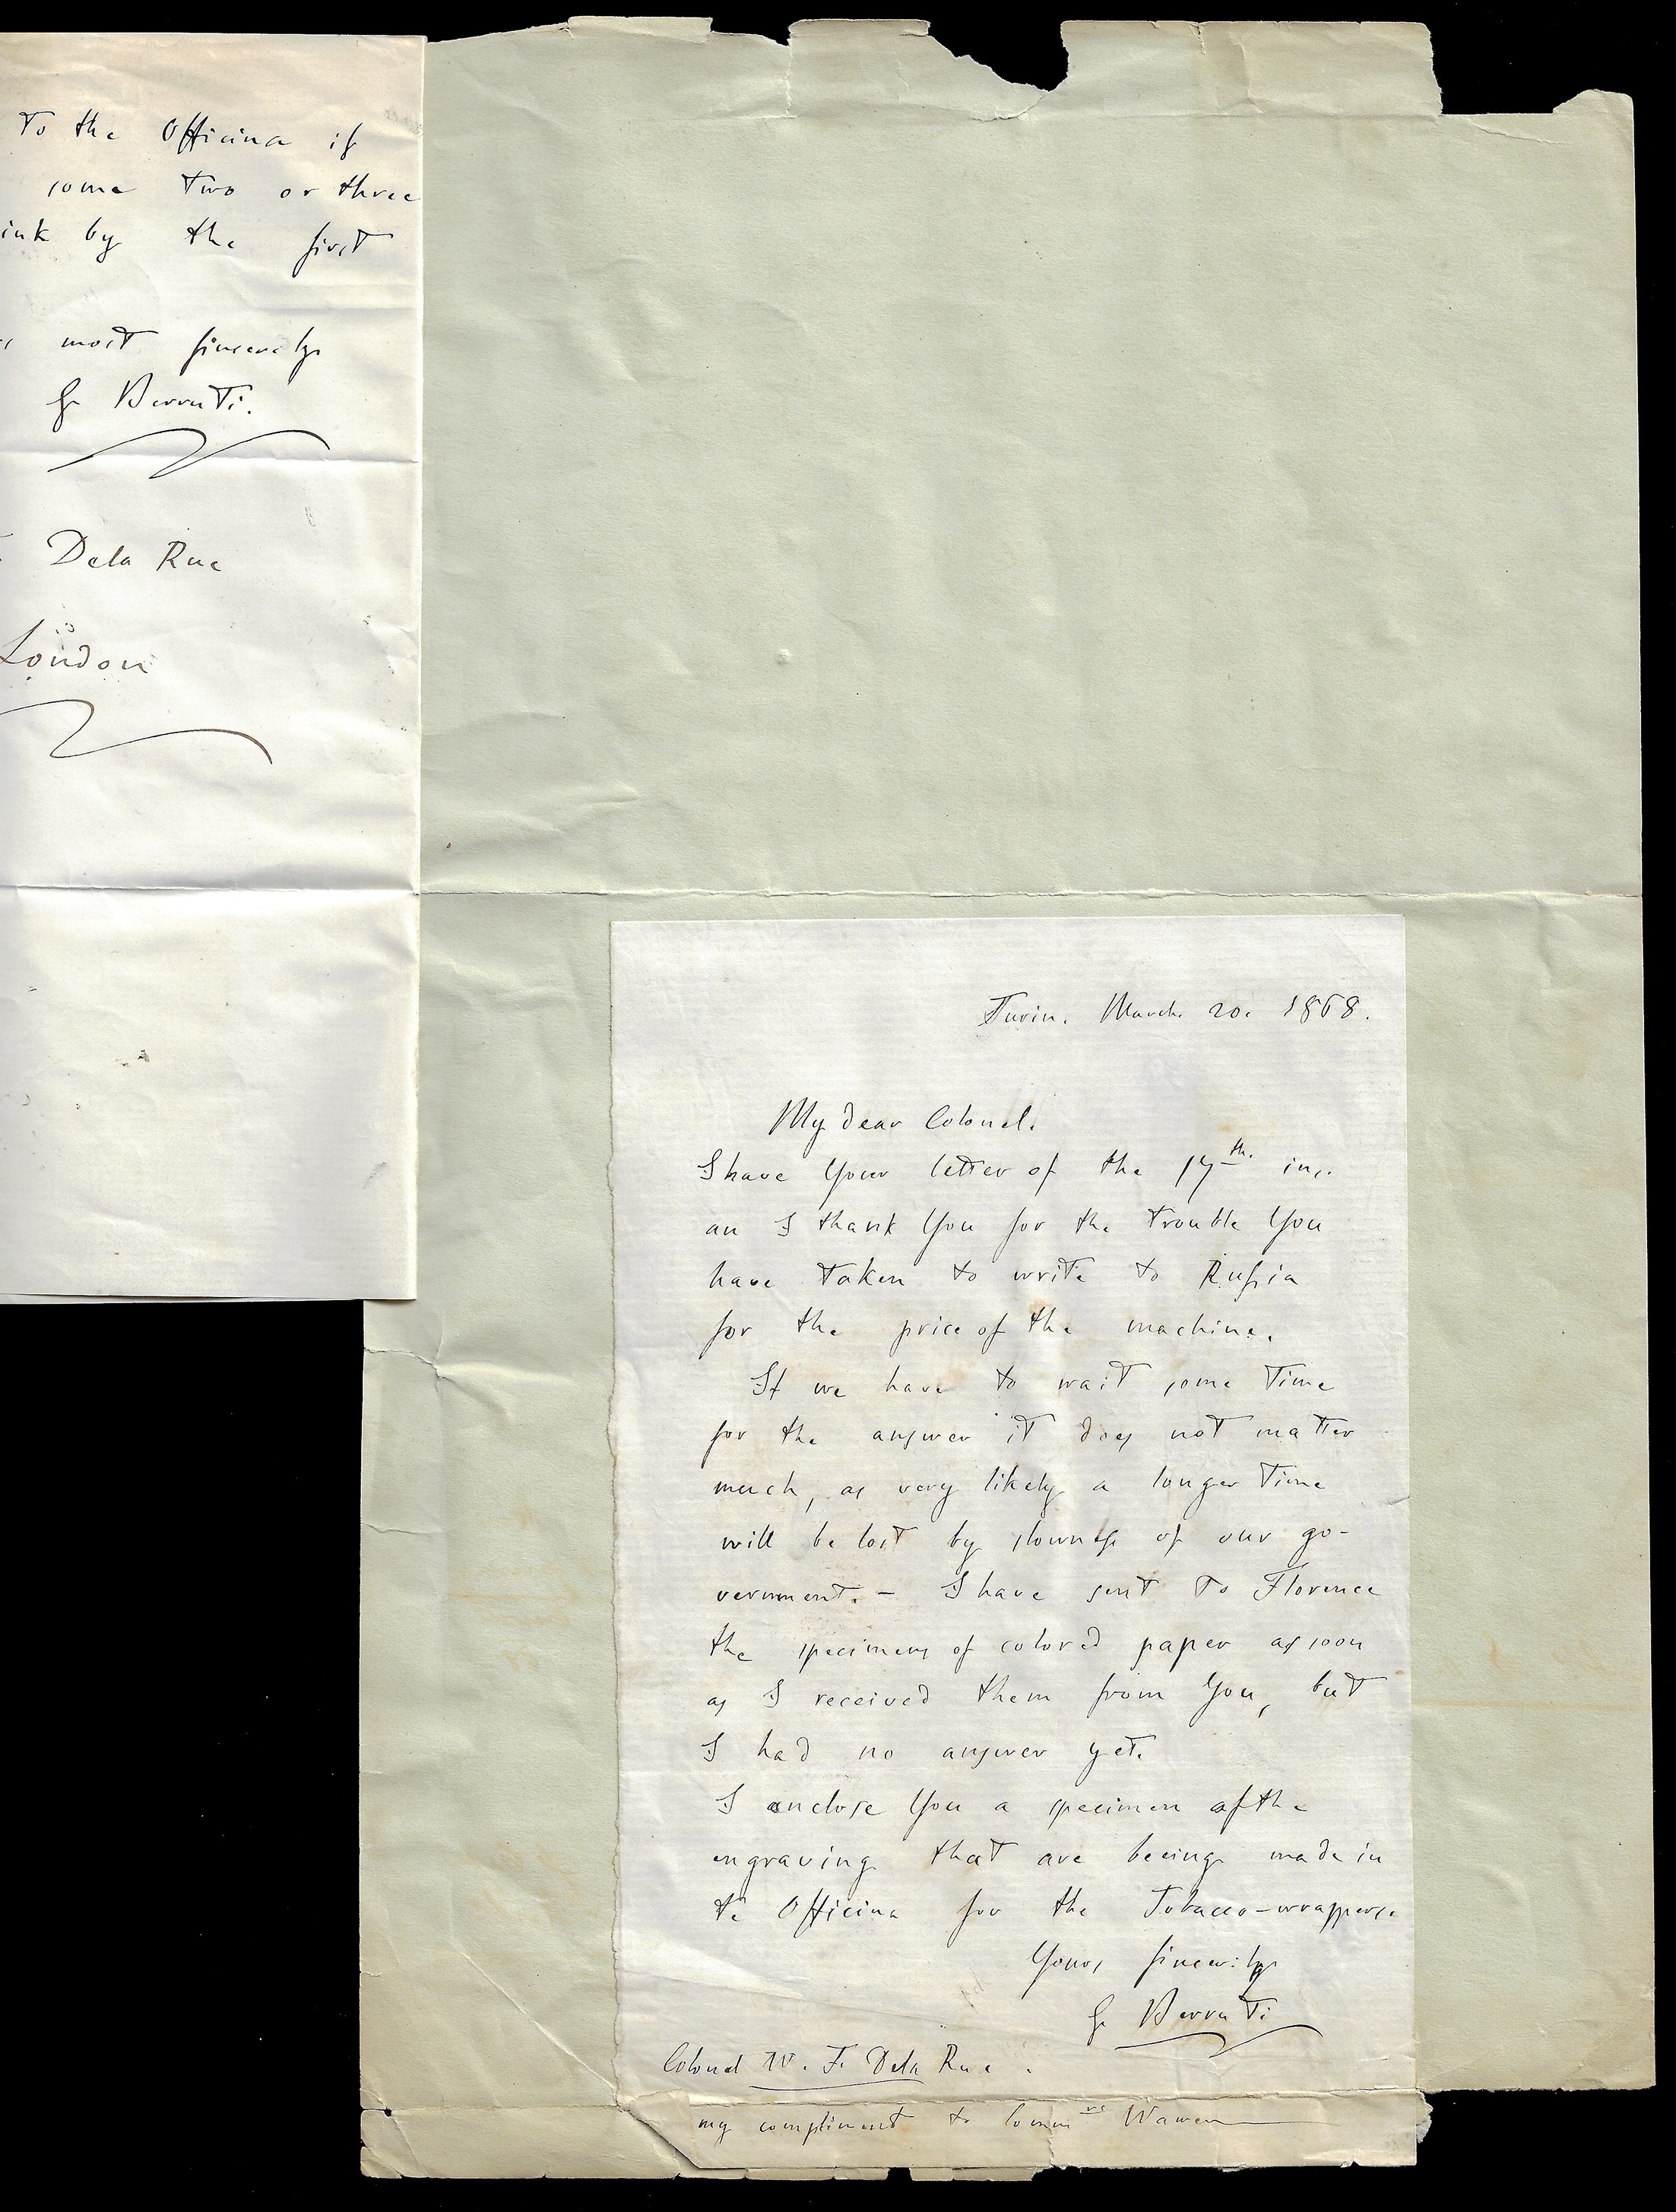 To the Officina if
some two or three
ink by the first
most sincerely
G Berruti.
Dela Rue
London
Turin. March 20. 1868.
My dear Colonel.
I have Your letter of the 17th. ins.
an I thank You for the trouble You
have taken to write to Russia
for the price of the machine.
If we have to wait some time
for the answer it does not matter
much, as very likely a longer time
will be lost by slowness of our go-
vernment. - I have sent to Florence
the specimens of colored paper as soon
as I received them from You, but
I had no answer yet.
I enclose You a specimen of the
engraving that are beeing made in
te Officina for the Tobacco-wrappers.
Yours sincerily
G Berruti
Colonel W. F. Dela Rue.
my compliment to